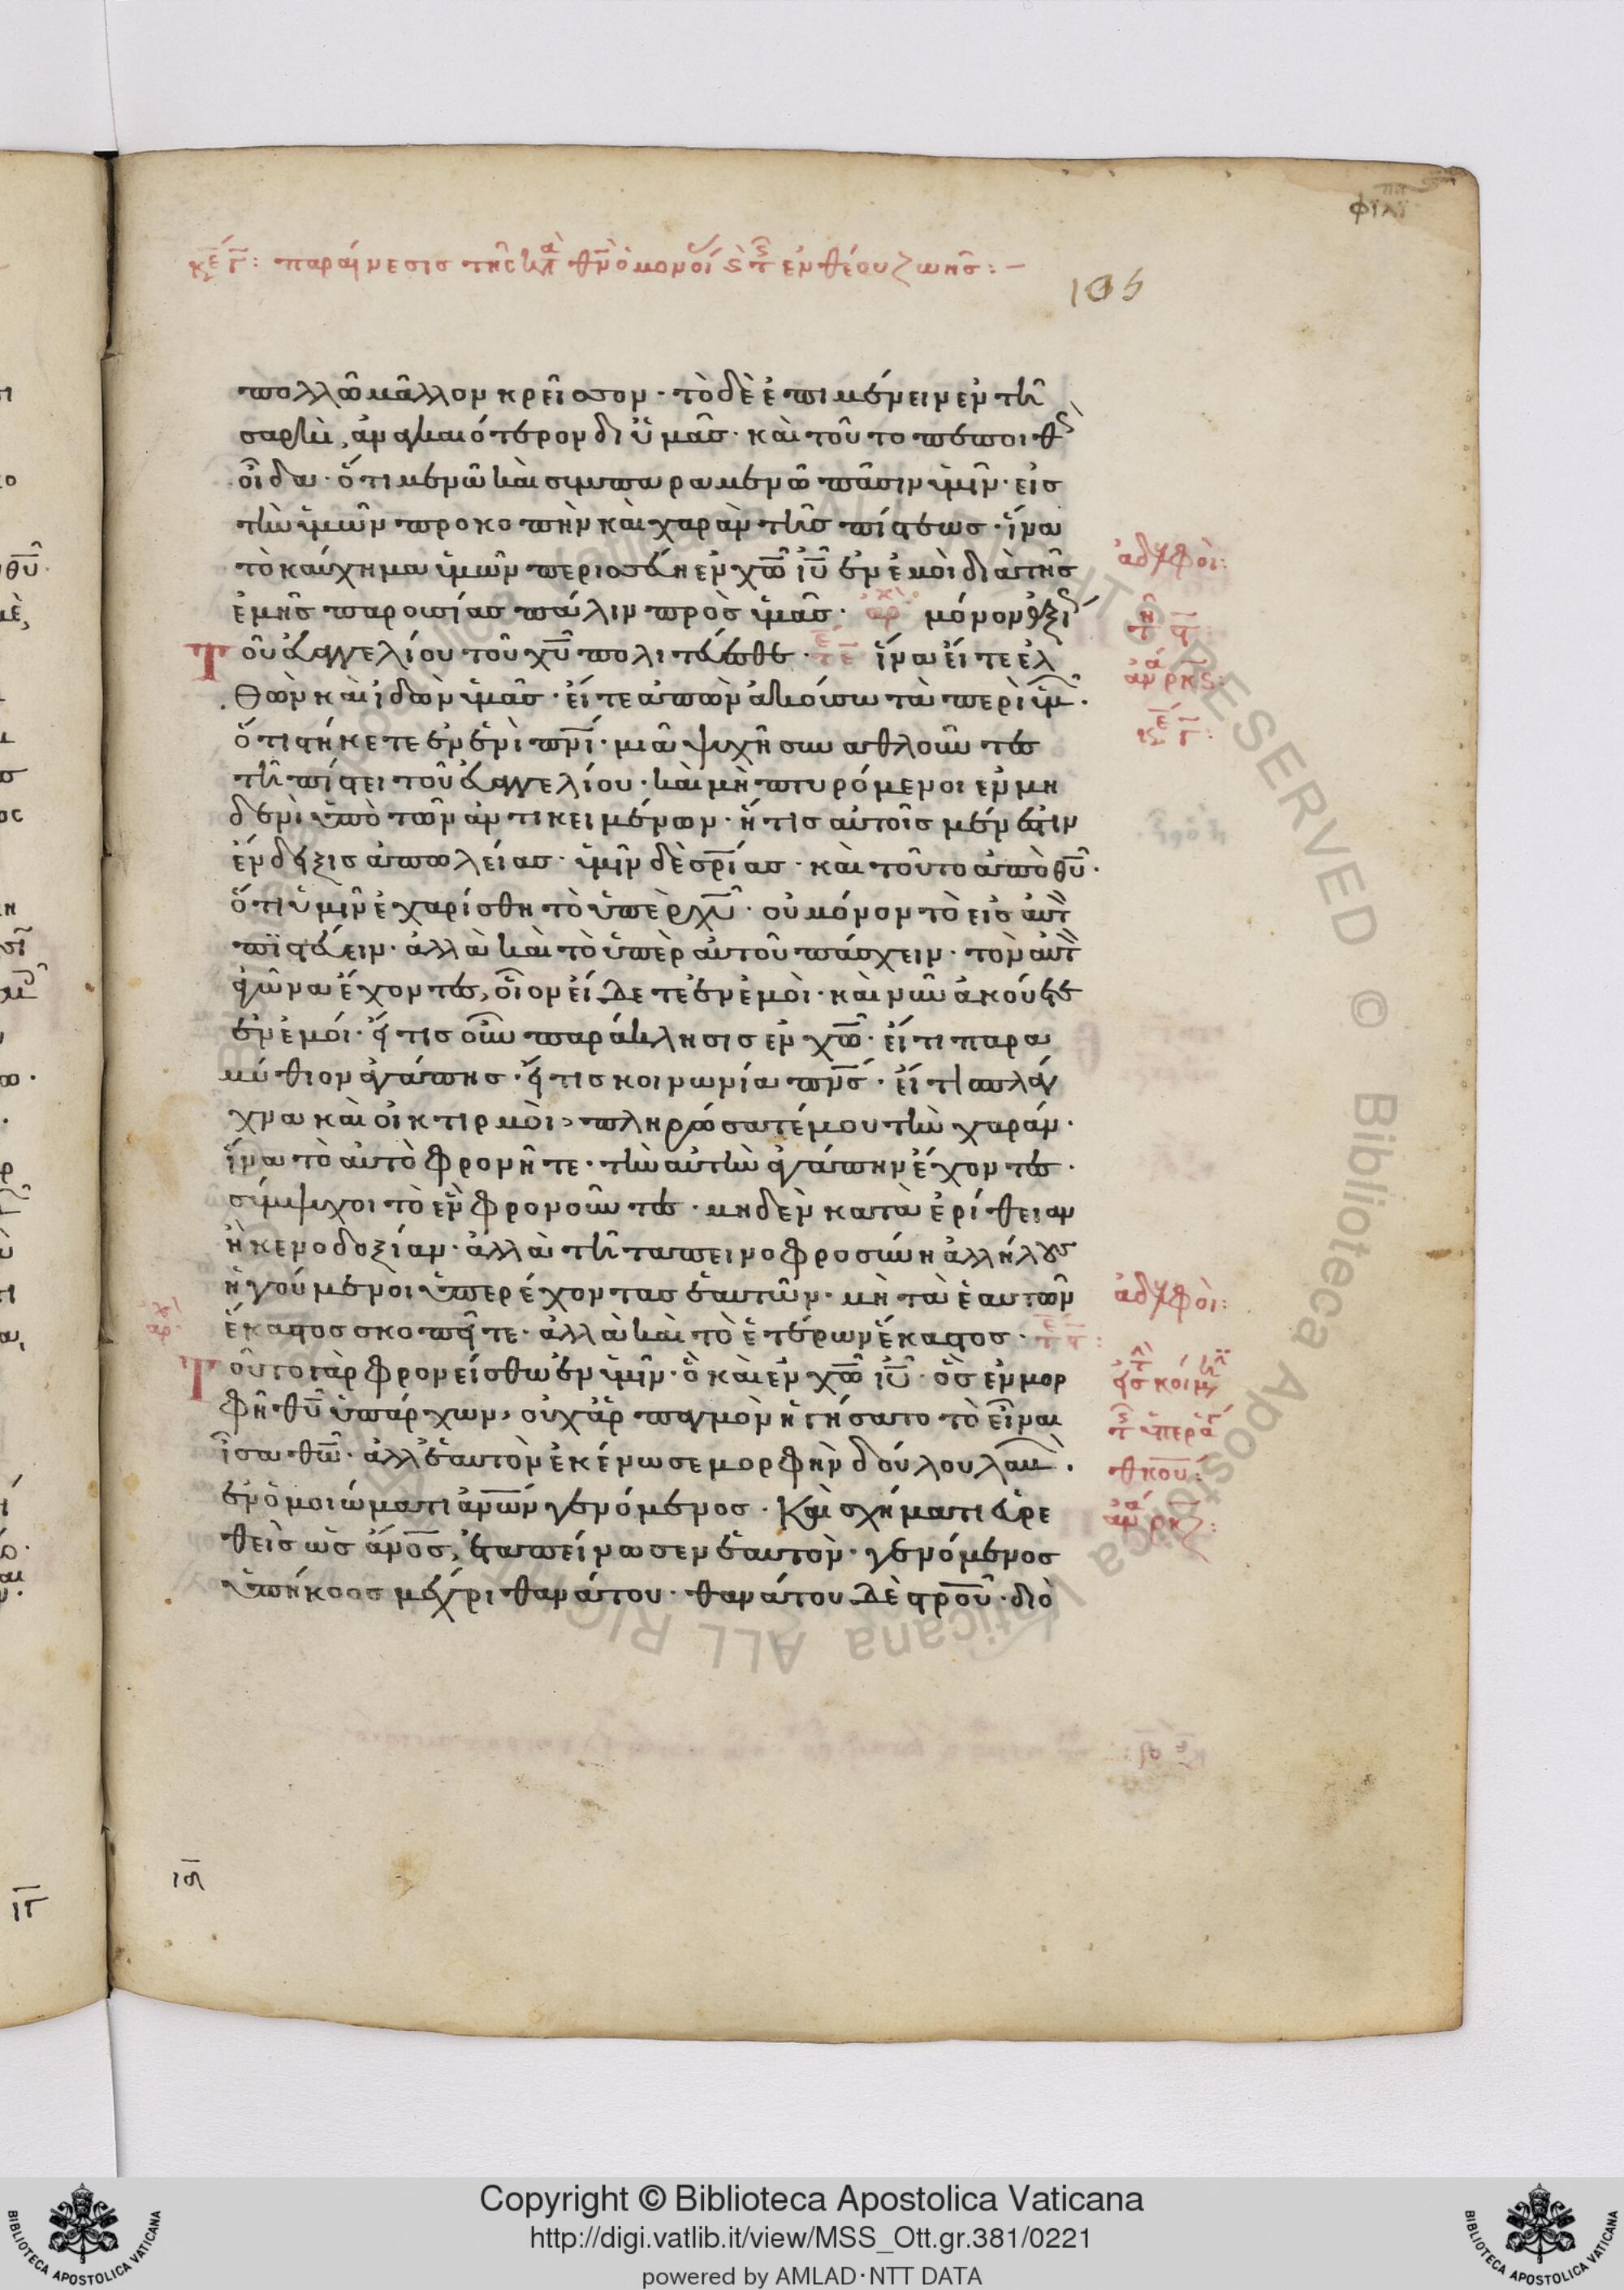 φιλιπ
κε γ: παραίνεσις της κατὰ θν ὁμονοί ς τ ενθέου ζωης:–
105
πολλῶ μᾶλλον κρεῖσσον· τὸ δὲ ἐπιμένειν ἐν τῆ
σαρκὶ, ἀναγκαιότερον δι ὑμᾶς· καὶ τοῦτο πεποιθ
οἶδα· ὅτι μενῶ καὶ συμπαραμενῶ πᾶσιν ὑμῖν· εἰς
τὴν ὑμῶν προκοπὴν καὶ χαρὰν τῆς πίστεως· ἵνα
τὸ καύχημα ὑμῶν περισσεύη ἐν χω ιυ ἐν ἐμοὶ διὰ τῆς
ἀδελφοὶ:
ἐμῆς παρουσίας πάλιν πρὸς ὑμᾶς· αρχ μόνον ἀξί
Τοῦ εὐαγγελίου τοῦ χυ πολιτεύεσθε· τε ἵνα εἴτε ἐλ
θὼν καὶ ἰδὼν ὑμᾶς· εἴτε ἀπὼν ἀκούσω τὰ περὶ ὑμ·
ὅτι στήκετε ἐν ἑνὶ πνι· μιᾶ ψυχῆ συναθλοῦντες
κε γ:
τῆ πίστει τοῦ εὐαγγελίου· καὶ μὴ πτυρόμενοι ἐν μη
δενὶ ὑπὸ τῶν ἀντικειμένων· ἥτις αὐτοῖς μέν ἐστιν
ἔνδειξις ἀπωλείας· ὑμῖν δὲ σρίας· καὶ τοῦτο ἀπὸ θυ·
ὅτι ὑμῖν ἐχαρίσθη τὸ ὑπὲρ χυ· οὐ μόνον τὸ εἰς αὐτ
πιστεύειν· ἀλλὰ καὶ τὸ ὑπὲρ αὐτοῦ πάσχειν· τὸν αὐτ
ἀγῶνα ἔχοντες, οἷον εἴδετε ἐν ἐμοὶ· καὶ νῦν ἀκούετε
ἐν ἐμοί· εἴ τις οὖν παράκλησις ἐν χω· εἴ τι παρα
μύθιον ἀγάπης· εἴ τις κοινωνία πνς· εἴ τι σπλάγ
χνα καὶ οἰκτιρμοὶ, πληρώσατέ μου τὴν χαράν·
ἵνα τὸ αὐτὸ φρονῆτε· τὴν αὐτὴν ἀγάπην ἔχοντες·
σύμψυχοι τὸ ἓν φρονοῦντες· μηδὲν κατὰ ἐρίθειαν
ἢ κενοδοξίαν· ἀλλὰ τῆ ταπεινοφροσύνη ἀλλήλους
ἡγούμενοι ὑπερέχοντας ἑαυτῶν· μὴ τὰ ἑαυτῶν
ἀδελφοὶ:
αρχ
ἕκαστος σκοπεῖτε· ἀλλὰ καὶ τὸ ἑτέρων ἕκαστος·
Τοῦτο γὰρ φρονείσθω ἐν ὑμῖν· ὃ καὶ ἐν χω ιυ· ὃς ἐν μορ
φῆ θυ ὑπάρχων, οὐχ ἁρπαγμὸν ἡγήσατο τὸ εἶναι
ἶσα θω· ἀλλ ἑαυτὸν ἐκένωσε μορφὴν δούλου λαβ·
θκου:
ἐν ὁμοιώματι ἀνων γενόμενος· Καὶ σχήματι εὑρε
θεὶς ὡς ἄνος, ἐταπείνωσεν ἑαυτὸν· γενόμενος
ὑπήκοος μέχρι θανάτου· θανάτου δὲ στρου· διὸ
ιδ
Copyright © Biblioteca Apostolica Vaticana
http://digi.vatlib.it/view/MSS_Ott.gr.381/0221
powered by AMLAD·NTT DATA
BIBLIOTECA APOSTOLICA VATICANA
BIBLIOTECA APOSTOLICA VATICANA